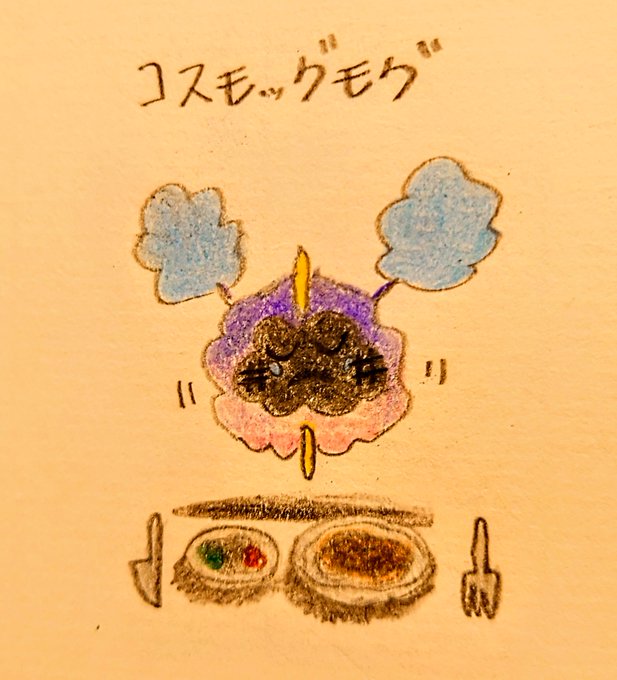 コスモッグモグ